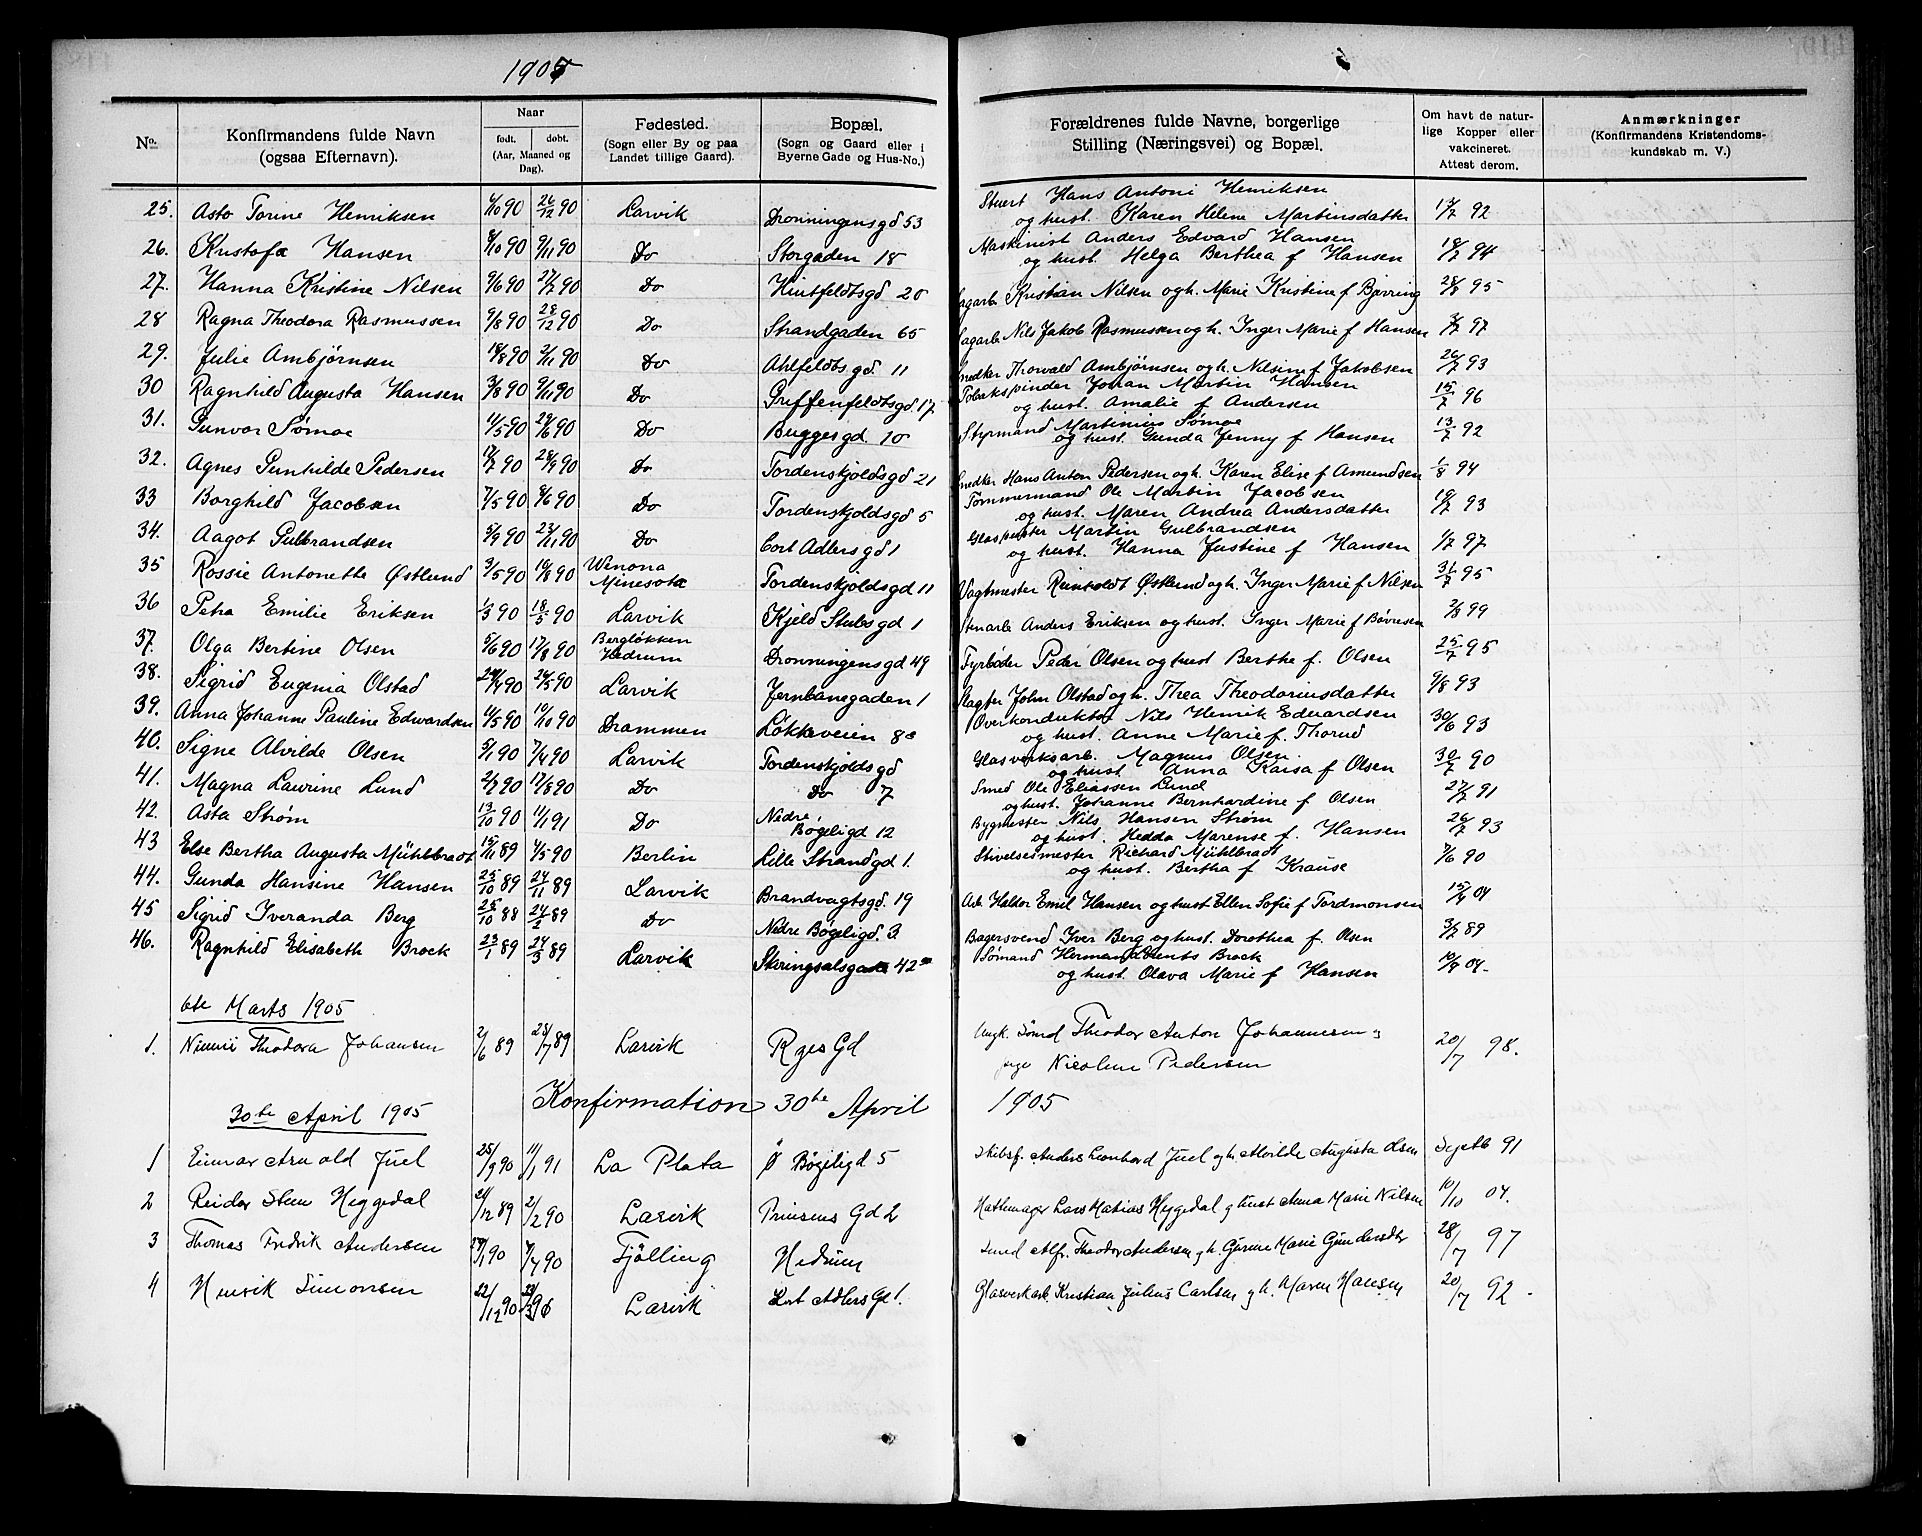 1905
No. | Konfirmandens fulde Navn (ogsaa Efternavn). | Naar født. døbt. (Aar, Maaned og Dag). | Fødested. (Sogn eller By og paa Landet tillige Gaard). | Bopæl. (Sogn og Gaard eller i Byerne Gade og Hus-No.) | Forældrenes fulde Navne, borgerlige Stilling (Næringsvei) og Bopæl. | Om havt de naturlige Kopper eller vakcineret. Attest derom. | Anmærkninger (Konfirmandens Kristendomskundskab m. V.)
25. Asta Torine Henriksen 90 26/12 90 Larvik Dronningensgd 53 Stuert Hans Antoni Henriksen
og hust. Karen Helene Martinsdatter 92
26. Kristofa Hansen 8/10 90 9/11 90 Do Storgaden 18 Maskinist Anders Edvard Hansen
og hust. Helga Berthea f Hansen 94
27. Hanna Kristine Nilsen 9/6 90 27/7 90 Do Huitfeldtsgd 20 Sagarb Kristian Nilsen og h. Marie Kristine f Bjørring 95
28 Ragna Theodora Rasmussen 9/8 90 28/12 90 Do Strandgaden 65 Sagarb Nils Jakob Rasmussen og h. Inger Marie f Hansen 97
29. Julie Ambjørnsen 18/8 90 2/11 90 Do Ahlfeldtsgd 11 Snedker Thorvald Ambjørnsen og h. f Jakobsen 26/7 93
30 Ragnhild Augusta Hansen 3/8 90 9/11 90 Do Griffenfeldtsgd. 17 Tobakspinder Johan Martin Hansen
og hust. Amalie f Andersen 15/7 96
31. Gunvor Sømoe 11/5 90 29/6 90 Do Buggesgd. 10 Styrmand Martinius Sømoe
og hust. Gunda Jenny f Hansen 13/7 92
32. Agnes Gunhilde Pedersen 17/7 90 28/9 90 Do Tordenskjoldsgd 21 Snedker Hans Anton Pedersen og h. Karen Elise f Amundsen 1/8 94
33 Borghild Jacobsen 7/5 90 8/6 90 Do Tordenskjoldsgd 5 Tømmermand Ole Martin Jacobsen
og hust. Maren Andrea Andersdatter 93
34. Aagot Gulbrandsen 5/9 90 23/11 90 Do Cort Adlersgd 1 Glaspuster Martin Gulbrandsen
og hust. Hanna Justine f Hansen 1/7 97
35 Rossie Antonette Østlund 3/5 90 10/8 90 Winona
Minesota Tordenskjoldsgd 11 Vagtmester Reinholdt Østlund og h. Inger Marie f Nilsen 31/7 95
36 Petra Emilie Eriksen 1/3 90 18/5 90 Larvik Kjeld Stubsgd 1 Stenarb Anders Eriksen og hust. Inger Marie f Bøvresen 99
37. Olga Bertine Olsen 5/6 90 17/8 90 Bergløkken
Hedrum Dronningensgd 49 Fyrbøder Peder Olsen og hust Berthe f. Olsen 25/7 95
38. Sigrid Eugenia Olstad 90 26/5 90 Larvik Jernbanegaden 1 Slagter John Olstad og h. Thea Theodoriusdatter 9/8 93
39. Anna Johanne Pauline Edwardsen 11/5 90 10/10 90 Drammen Løkkeveien 8c Overkonduktør Nils Henrik Edwardsen
og hust. Anne Marie f. Thorud 30/6 93
40. Signe Alvilde Olsen 5/1 90 7/4 90 Larvik Tordenskjoldsgd Glasverksarb. Magnus Olsen
og hust Anna Kaisa f Olsen 30/7 90
41. Magna Laurine Lund 2/7 90 17/8 90 Do Do 7 Smed Ole Eliassen Lund
og hust. Johanne Bernhardine f Olsen 27/7 91
42. Asta Strøm 13/10 90 1/1 91 Do Nedre
Bøgeligd 12 Bygmester Nils Hansen Strøm
og hust. Hedda Marense f. Hansen 26/7 93
43 Else Bertha Augusta Mühlbradt 15/11 89 4/5 90 Berlin Lille Strandgd 1. Stivelsesmester Richard Mühlbradt
og hust. Bertha f Krause 7/6 90
44. Gunda Hansine Hansen 25/10 89 24/11 89 Larvik Brandvagtsgd. 19 Arb Haldor Emil Hansen og hust Ellen Sofie f Tordmonsen 04
45 Sigrid Iveranda Berg 25/10 88 24/2 89 Do Nedre Bøgeligd. 3 Bagersvend Iver Berg og hust. Dorothea f. Olsen 3/7 89
46. Ragnhild Elisabeth Brock 23/1 89 24/3 89 Larvik Skiringsalsgade 42 Sømand Herman Brock
og hust. Olava Marie f Hansen 04.
6te Marts 1905
1. Theodora Johansen 2/6 89 25/7 89 Larvik Ryes Gd Ungk. Sømd Theodor Anton Johannesen og
pige Nicoline Pedersen 20/7 98.
Konfirmation 30te April 1905
30te April 1905
1 Einar Arnold Juel 25/9 90 11/1 91 La Plata Ø Bøgeligd 5 Skibsf. Anders Leonhard Juel og h. Alvilde Augusta Olsen Septb 91
2 Reidar Steen Heggedal 21/12 89 2/2 90 Larvik Prinsens Gd 2 Hattemager Lars Matias Heggedal og hust Anna Marie Nilsen 10/10 04.
3 Thomas Fredrik Andersen 90 7/4 90 Tjølling Hedrum Smed Alfr. Theodor Andersen og h. Marie Gundersdtr 28/7 97
4 Henrik Simonsen 22/12 90 90 Larvik Kort Adlers Gd 1. Glasverkarb. Kristian Julius Carlsen og h. Maren Hansen 20/7 92.